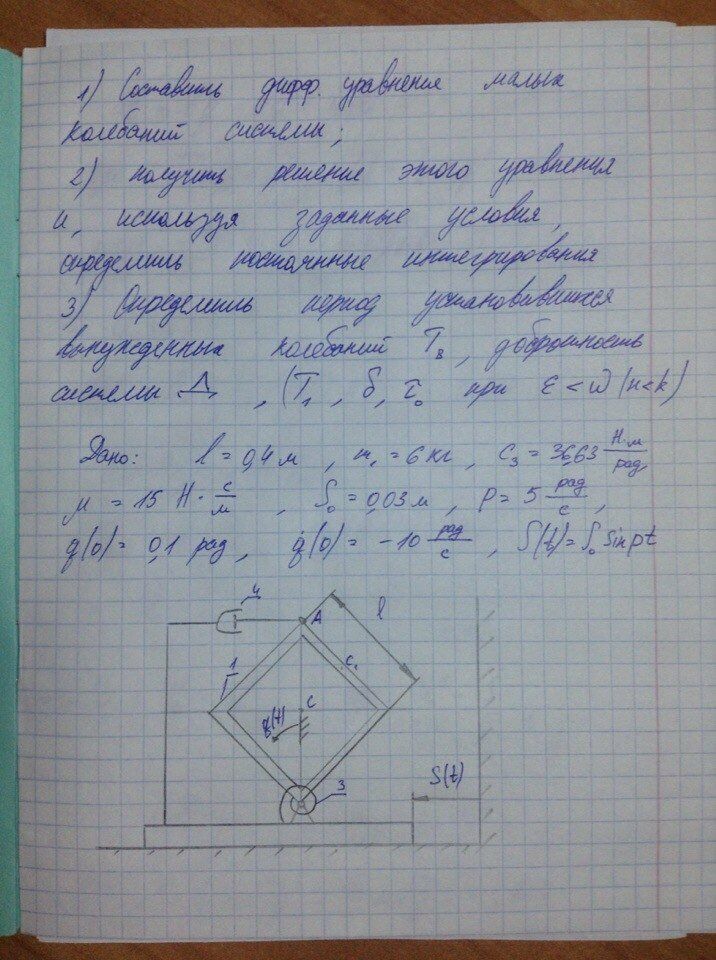 1) Составить дифф. уравнения малых
колебаний системы;
2) получить решение этого уравнения
и, используя заданные условия,
определить постоянные интегрирования
3) Определить период установившихся
вынужденных колебаний Tв, добротность
системы Д, (T1, δ, τ0 при ε<ω (n<k)
Дано: l = 0,4 м, m1 = 6 кг, C3 = 36,63 Н·м/рад
μ = 15 Н·с/м, S0 = 0,03 м, p = 5 рад/с,
q(0) = 0,1 рад, q̇(0) = -10 рад/с, S(t) = S0 sin pt
4
A
l
1
C1
C
q(t)
3
S(t)